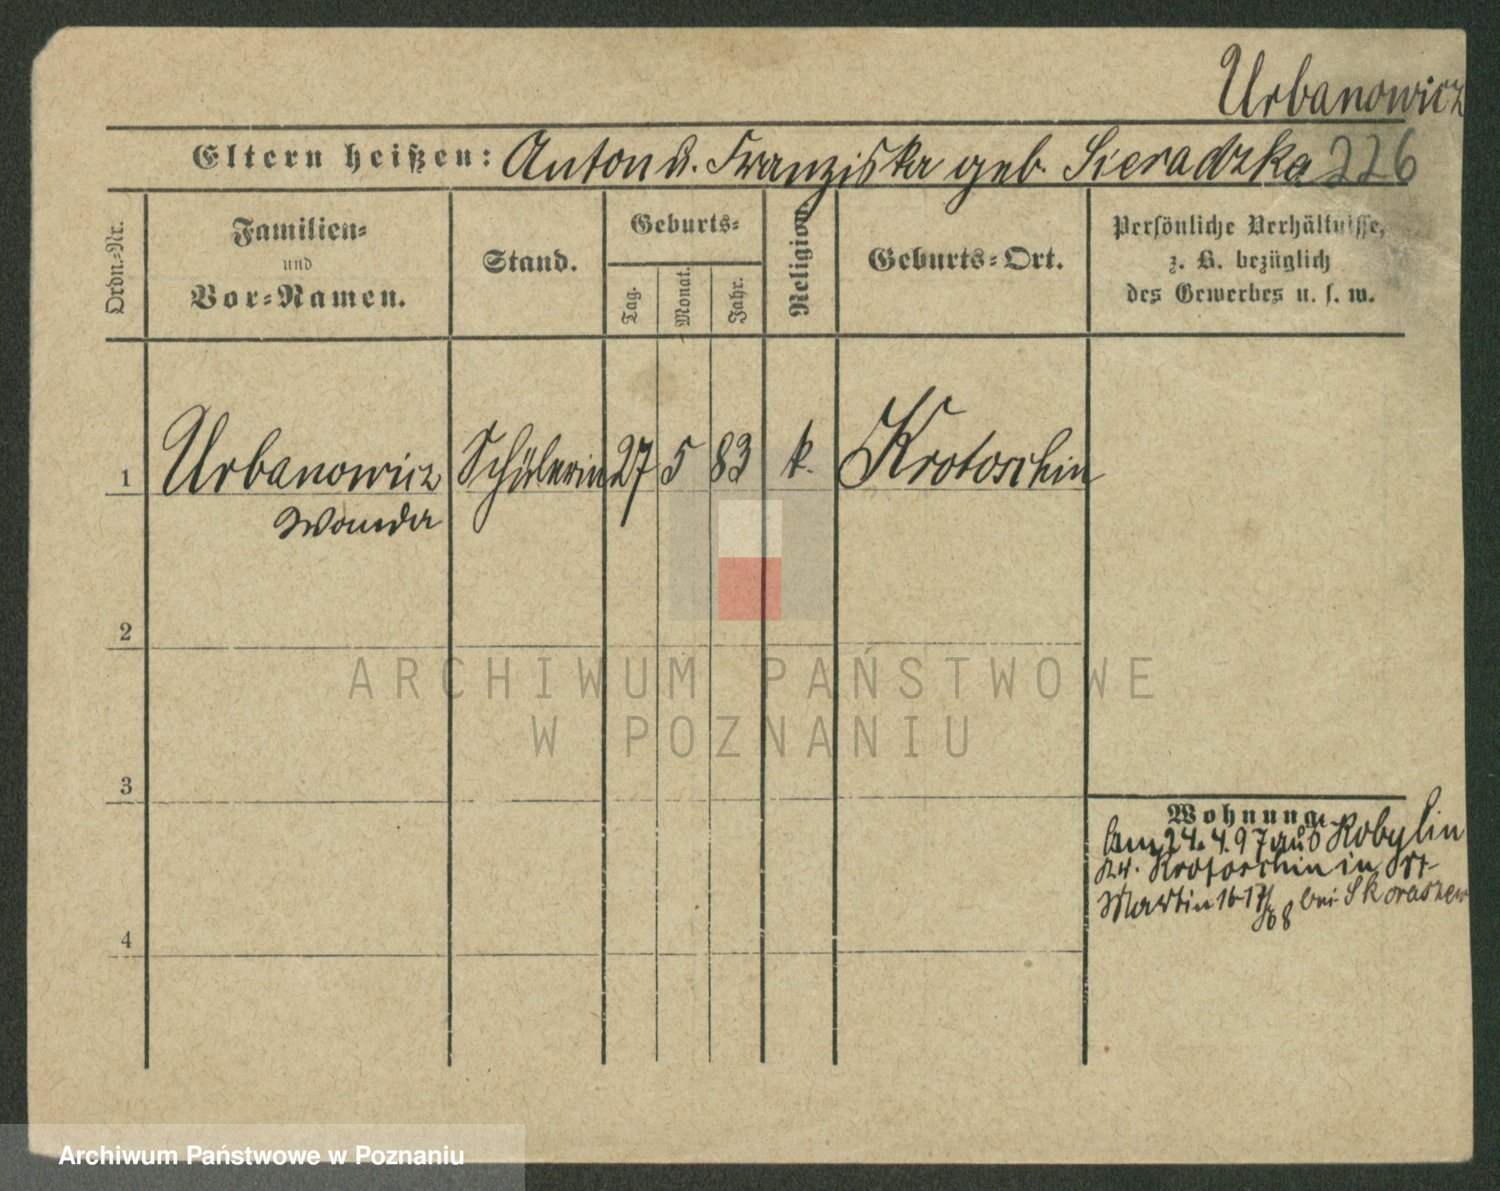 Urbanowicz
Eltern heißen: Anton u. Franziska geb. Sieradzka 226
Ordn.-Nr.
Familien-
und
Vor-Namen.
Stand.
Geburts-
Tag.
Monat.
Jahr.
Religion
Geburts-Ort.
Persönliche Verhältnisse,
z. B. bezüglich
des Gewerbes u. s. w.
1 Urbanowicz Schülerin 27 5 83 k. Krotoschin
Wanda
2
3
4
Wohnung.
24.4.97 aus Kobylin
Kr. Krotoschin in St.
Martin 16-17 bei Skoraszew
ARCHIWUM PAŃSTWOWE
W POZNANIU
Archiwum Państwowe w Poznaniu